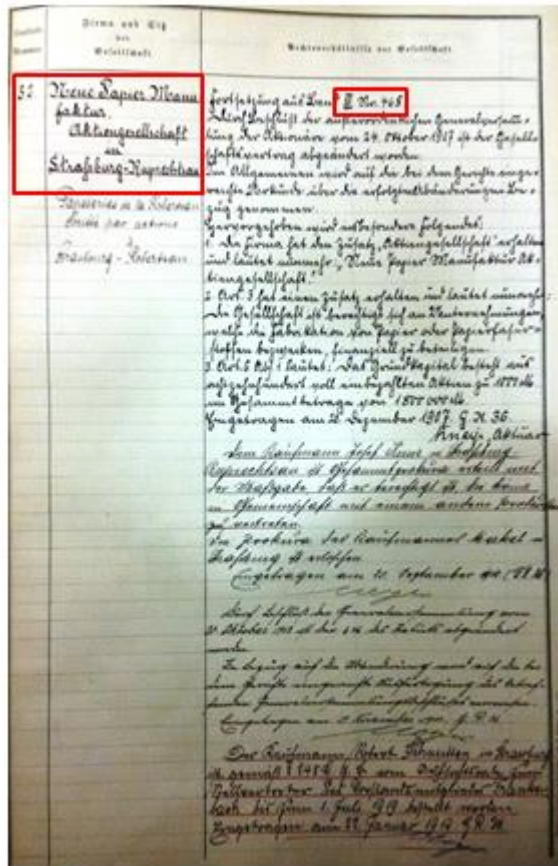 Firma und Sitz
der
Gesellschaft
Rechtsverhältnisse der Gesellschaft
52
Neue Papier Manu
faktur.
Aktiengesellschaft
in
Straßburg-Ruprechtsau
Papeteries de la Robertsau
Société par actions
Strasbourg-Robertsau
Fortsetzung aus Band III Nr. 468
Durch Beschluß der außerordentlichen Generalversamm-
lung der Aktionäre vom 24. Oktober 1907 ist der Gesell-
schaftsvertrag abgeändert worden.
Im Allgemeinen wird auf die bei dem Gerichte einge-
reichte Urkunde über die erfolgten Abänderungen Be-
zug genommen.
Hervorgehoben wird insbesondere Folgendes:
1. die Firma hat den Zusatz „Aktiengesellschaft“ erhalten
und lautet nunmehr: „Neue Papier Manufaktur Ak-
tiengesellschaft.“
2. Art. 3 hat einen Zusatz erhalten und lautet nunmehr:
die Gesellschaft ist berechtigt sich an Unternehmungen,
welche die Fabrikation von Papier oder Papierfaser-
stoffen bezwecken, finanziell zu beteiligen.
3. Art. 5 Abs. 1 lautet: Das Grundkapital besteht aus
achtzehnhundert voll einbezahlten Aktien zu 1000 M
im Gesammtbetrage von 1800000 M.
Eingetragen am Dezember 1907. G. R. 36.
Aktuar
Dem Kaufmann Josef in Straßburg-
Ruprechtsau ist Gesammtprokura erteilt mit
der Maßgabe daß er berechtigt ist, die Firma
in Gemeinschaft mit einem andern Prokuristen
zu vertreten.
Die Prokura des Kaufmannes in
Straßburg ist erloschen.
Eingetragen am 20. September
Durch Beschluß der Generalversammlung vom
Oktober ist der des Statuts abgeändert
worden.
In bezug auf die Abänderung wird auf die bei
dem Gerichte eingereichte
Generalversammlungsbeschlusses verwiesen.
Eingetragen am November G. R.
Der Kaufmann Robert in Straßburg
ist gemäß § 248 H. G. B. vom Aufsichtsrate zum
Stellvertreter des Vorstandsmitgliedes
bach bis zum 1. Juli 1919 bestellt worden
Eingetragen am 22. Januar 1919 G. R.